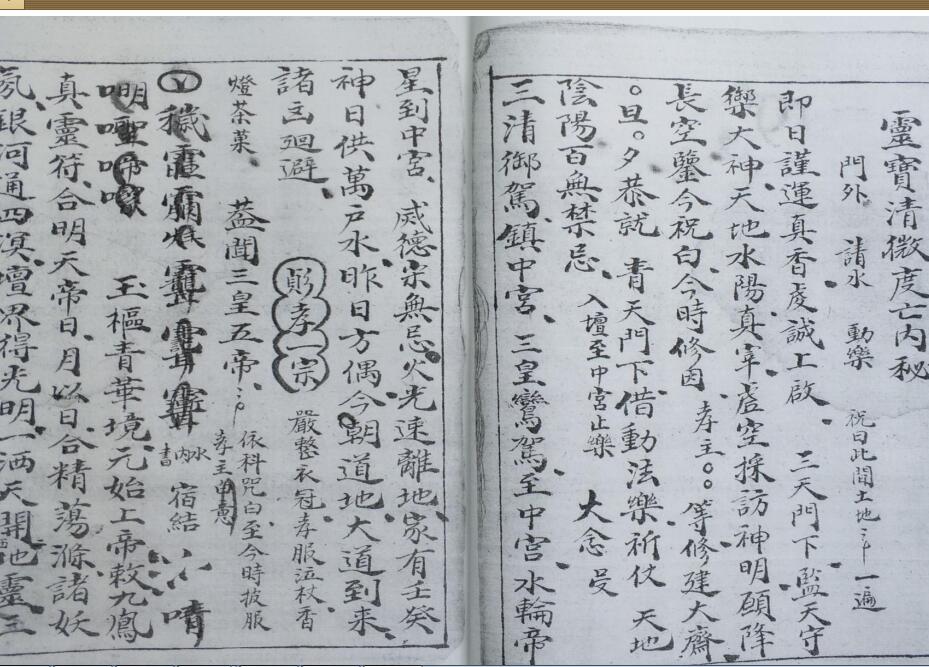 靈寶清微度亡內秘
門外 請水 動樂 祝曰此間土地 一遍
即日謹運真香虔誠上啟 三天門下監天守
禦大神天地水陽真宰虛空採訪神明願降
長空鑒今祝白今時修因 孝主○○等修建大齋
○旦○夕恭就 青天門下借動法樂祈仗 天地
陰陽百無禁忌 入壇至中宮止樂 大念
三清御駕鎮中宮 三皇鸞駕至中宮水輪帝
星到中宮 威德宗無忌火光速離地家有壬癸
神日供萬戶水昨日方偶今朝道地大道到來
諸凶迴避 孝宗 嚴整衣冠孝服泣杖香
燈茶菓 蓋聞三皇五帝 依科咒白至今時披服 孝主
穢 水內書 宿結
玉樞青華境元始上帝敕九鳳
真靈符合明天帝日月以日合精蕩滌諸妖
氛銀河通四溟壇界得光明一洒天開地靈三